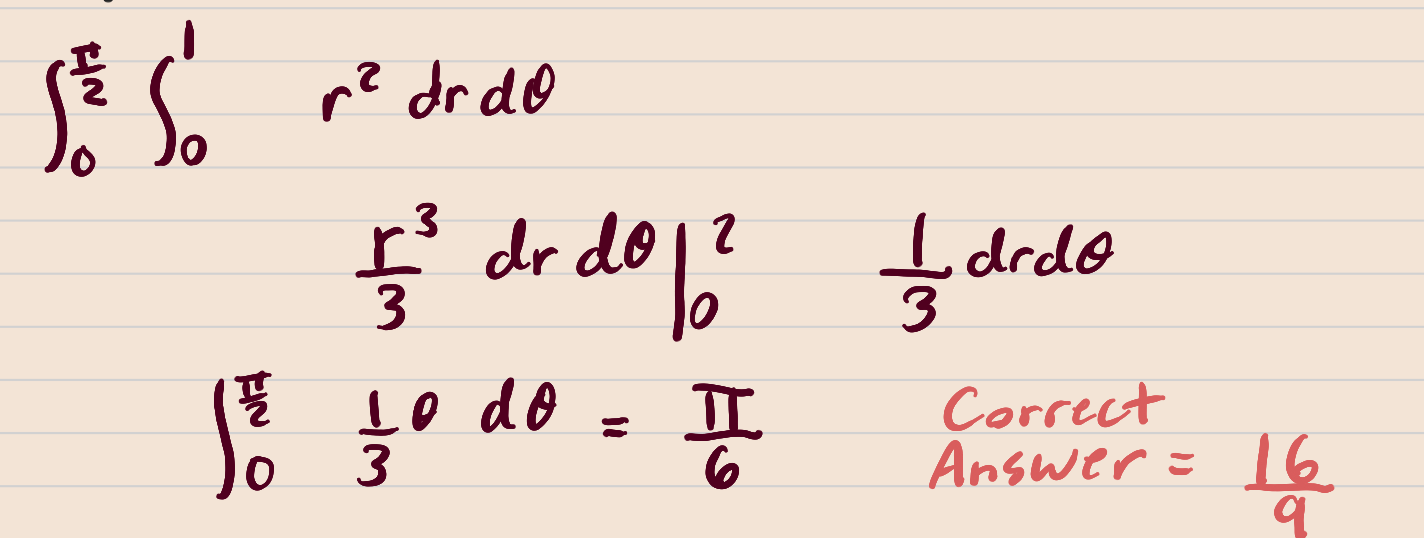 ∫₀^{π/2} ∫₀^1 r² dr dθ
r³/3 dr dθ |₀² 1/3 dr dθ
∫₀^{π/2} 1/3 θ dθ = π/6 Correct
Answer = 16/9